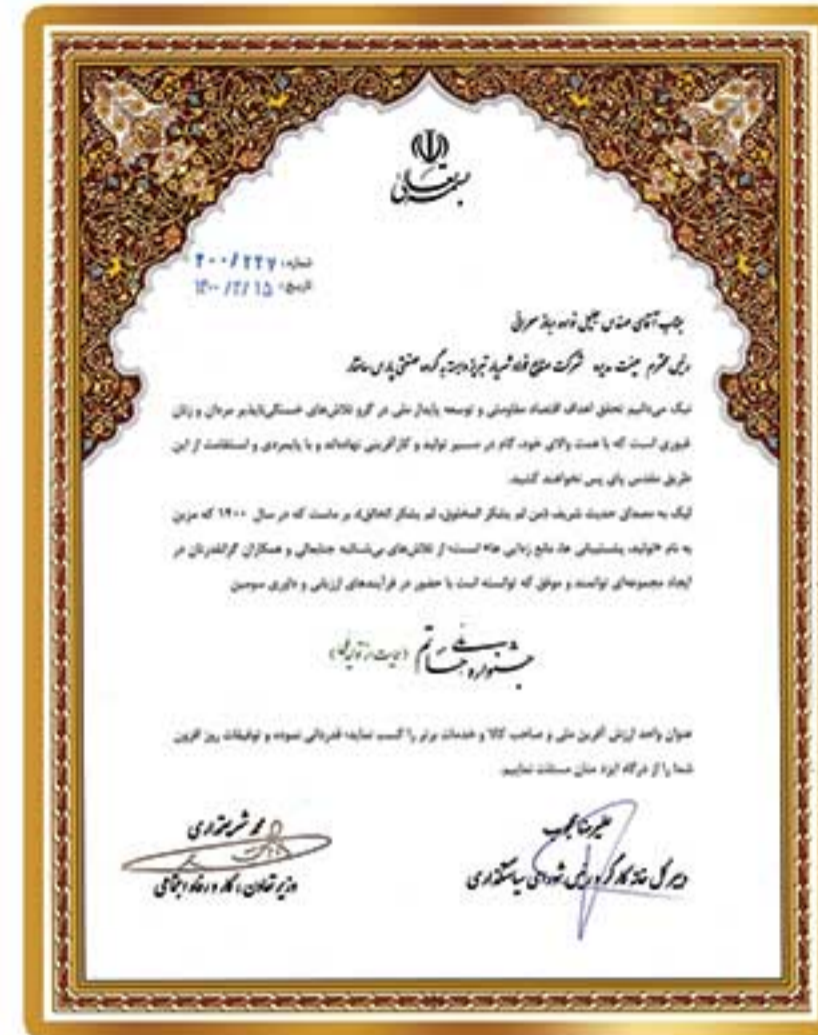 بسمه تعالی
شماره: ۲۰۰/۲۲۷
تاریخ: ۱۴۰۰/۲/۱۵
جناب آقای مهندس
رئیس محترم هیئت مدیره شرکت صنایع فولاد شهریار تبریز وابسته به گروه صنعتی پارس ساختار
نیک می‌دانیم تحقق اهداف اقتصاد مقاومتی و توسعه پایدار ملی در گرو تلاش‌های خستگی‌ناپذیر مردان و زنان
غیوری است که با همت والای خود، گام در مسیر تولید و کارآفرینی نهاده‌اند و با پایمردی و استقامت از این
طریق مقدس پای پس نخواهند کشید.
لیک به مصداق حدیث شریف (من لم یشکر المخلوق، لم یشکر الخالق)، بر ماست که در سال ۱۴۰۰ که مزین
به نام «تولید، پشتیبانی ها، مانع زدایی ها» است؛ از تلاش‌های بی‌شائبه جنابعالی و همکاران گرانقدرتان در
ایجاد مجموعه‌ای توانمند و موفق که توانسته است با حضور در فرآیندهای ارزیابی و داوری سومین
جشنواره ملی حاتم (حمایت از تولید ملی)
عنوان واحد ارزش آفرین ملی و صاحب کالا و خدمات برتر را کسب نماید؛ قدردانی نموده و توفیقات روز افزون
شما را از درگاه ایزد منان مسئلت نماییم.
علیرضا محجوب
دبیر کل خانه کارگر و رئیس شورای سیاستگذاری
محمد شریعتمداری
وزیر تعاون، کار و رفاه اجتماعی